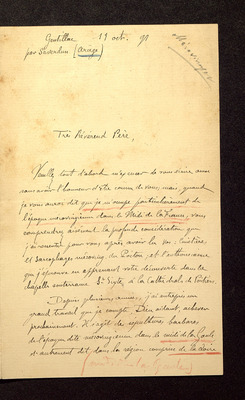 Gentillac 19 oct. 91
par Saverdun (Ariège)
Mérovingien
Très Révérend Père,
Veuillez tout d'abord m'excuser de vous écrire sans
avoir l'honneur d'être connu de vous, mais, quand
je vous aurai dit que je m'occupe particulièrement de
l'époque mérovingienne dans le Midi de la France, vous
comprendrez aisément la profonde considération que
j'ai pour vous, après avoir lu
et Sarcophage de Poitou, et l'enthousiasme
que j'éprouve en apprenant votre découverte dans la
chapelle souterraine à la Cathédrale de Poitiers.
Depuis plusieurs années, j'ai entrepris un
grand travail que je compte, Dieu aidant, achever
prochainement. Il s'agit des sépultures barbares
de l'époque dite mérovingienne dans le midi de la Gaule
et autrement dit dans la région comprise de la Loire